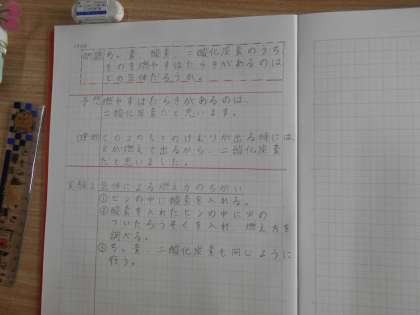 問題 ちっ素、酸素、二酸化炭素のうち
ものを燃やすはたらきがあるのは
どの気体だろうか。
予想 燃やすはたらきがあるのは、
二酸化炭素だと思います。
理由 けむりが出る時には、
火が燃えて出るから、二酸化炭素
だと思いました。
実験1 気体による燃え方のちがい
①ビンの中に酸素を入れる。
②酸素を入れたビンの中に火の
ついたろうそくを入れ、燃え方を
調べる。
③ちっ素、二酸化炭素も同じように
行う。